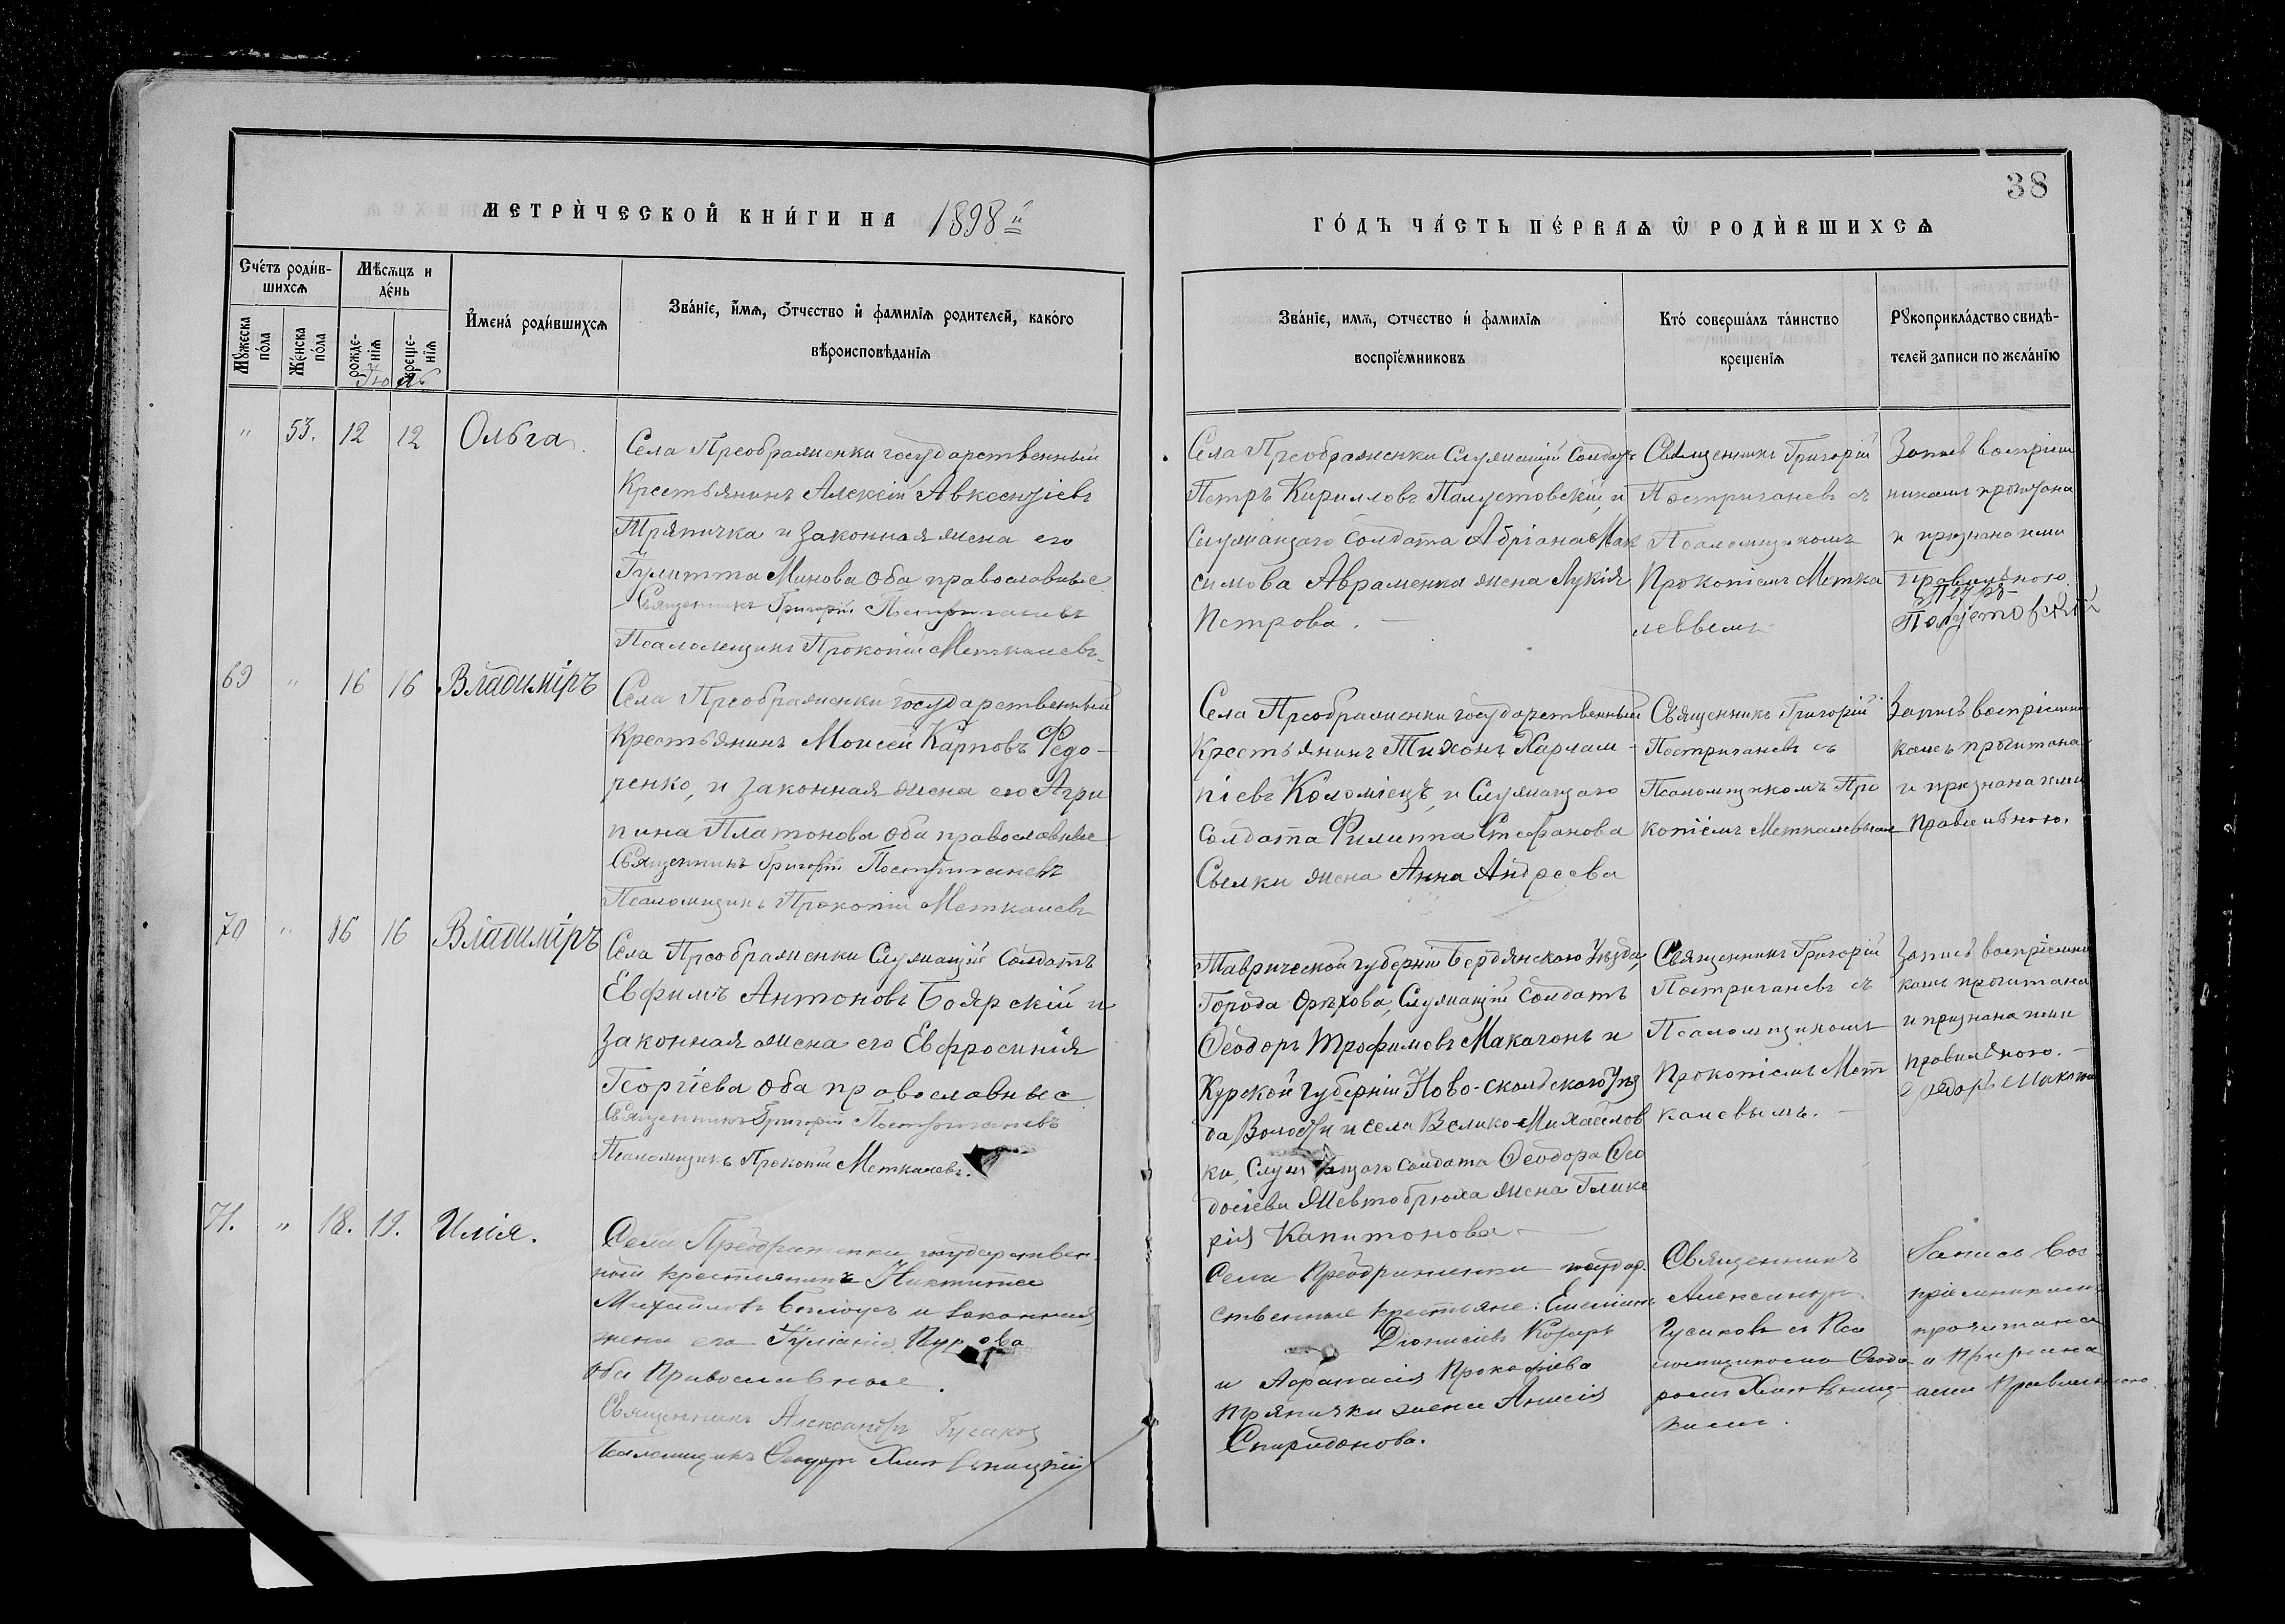 38
МЕТРИ́ЧЕСКОЙ КНИ́ГИ НА 1898й
ГО́ДЪ ЧА́СТЬ ПЕ́РВАѦ Ѡ҆ РОДИ́ВШИХСѦ
Сче́тъ роди́в-
шихсѧ
Мꙋжеска
по́ла
Же́нска
по́ла
Мѣ́сѧцъ и
де́нь
рожде-
нїѧ
креще-
нїѧ
Іюль
И҆мена́ роди́вшихсѧ
Зва́нїе, и҆́мѧ, ѻ҆́тчество и҆ фамилїѧ родителей, како́го
вѣроисповѣ́данїѧ
Зва́нїе, имѧ, ѻтчество и҆ фамилїѧ
воспрїе́мниковъ
Кто́ соверша́лъ та́инство
креще́нїѧ
Рꙋкоприкла́дство свидѣ́-
телей записи по жела́нїю
" 53. 12 12 Ольга
Села Преображенки государственный
Крестьянинъ Алексій Авксентіевъ
Тряпичка и законная жена его
Іулитта Минова оба православные
Священникъ Григорій Постригачевъ
Псаломщикъ Прокопій Меткалевъ
Села Преображенки Служащій Солдатъ
Петръ Кирилловъ Палустовскій, и
Служащаго Солдата Адріана Мак
симова Авраменка жена Лукія
Петрова.
Священникъ Григорій
Постригачевъ съ
Псаломщикомъ
Прокопіемъ Метка
леввемъ
Запись воспріем
никамъ прочитана
и признана ими
правильною
Петръ
Палустовский
69 " 16 16 Владиміръ
Села Преображенки государственный
Крестьянинъ Моисей Карповъ Федо-
ренко, и законная жена его Агри
пина Платонова оба православные
Священникъ Григорій Постригачевъ
Псаломщикъ Прокопій Меткалевъ
Села Преображенки государственный
Крестьянинъ Тихонъ Харлам-
піевъ Коломіецъ, и Служащаго
Солдата Филиппа Стефанова
жена Анна Андреева
Священникъ Григорій
Постригачевъ съ
Псаломщикомъ Про
копіемъ Меткалевымъ
Запись воспріемни
камъ прочитана
и признана ими
правильною.
70 " 16 16 Владиміръ
Села Преображенки Служащій Солдатъ
Евфимъ Антоновъ Боярскій и
законная жена его Евфросинія
Георгіева оба православные
Священникъ Григорій Постригачевъ
Псаломщикъ Прокопій Меткалевъ.
Таврической губерніи Бердянскаго Уѣзда,
Города Орѣхова, Служащій Солдатъ
Ѳеодоръ Трофимовъ Макагонъ и
Курской губерніи Ново-скольдскаго Уѣз
да, Волости и села Велико-Михайлов
ки, Служащаго Солдата Ѳеодора Ѳео
досіева Жевтобрюха жена Глике
рія Капитонова
Священникъ Григорій
Постригачевъ съ
Псаломщикомъ
Прокопіемъ Мет
калевымъ.
Запись воспріемни
камъ прочитана
и признана ими
правильною.
Федоръ Макагон
71. " 18. 19. Илія.
Села Преображенки государствен-
ный крестьянинъ Никита
Михайловъ Билоусъ и законная
жена его Іуліанія
оба Православные.
Священникъ Александръ Гусаков
Псаломщикъ Ѳеодоръ
Села Преображенки государ-
ственные крестьяне: Емеліанъ
Діонисіевъ Козарь
и Афанасія Прокофіева
Пряпички жена Анисія
Спиридонова.
Священникъ
Александръ
Гусаковъ съ Пса
ломщикомъ Ѳеодо
ромъ
Запись Вос-
пріемникамъ
прочитана
и признана
ими Правильною.